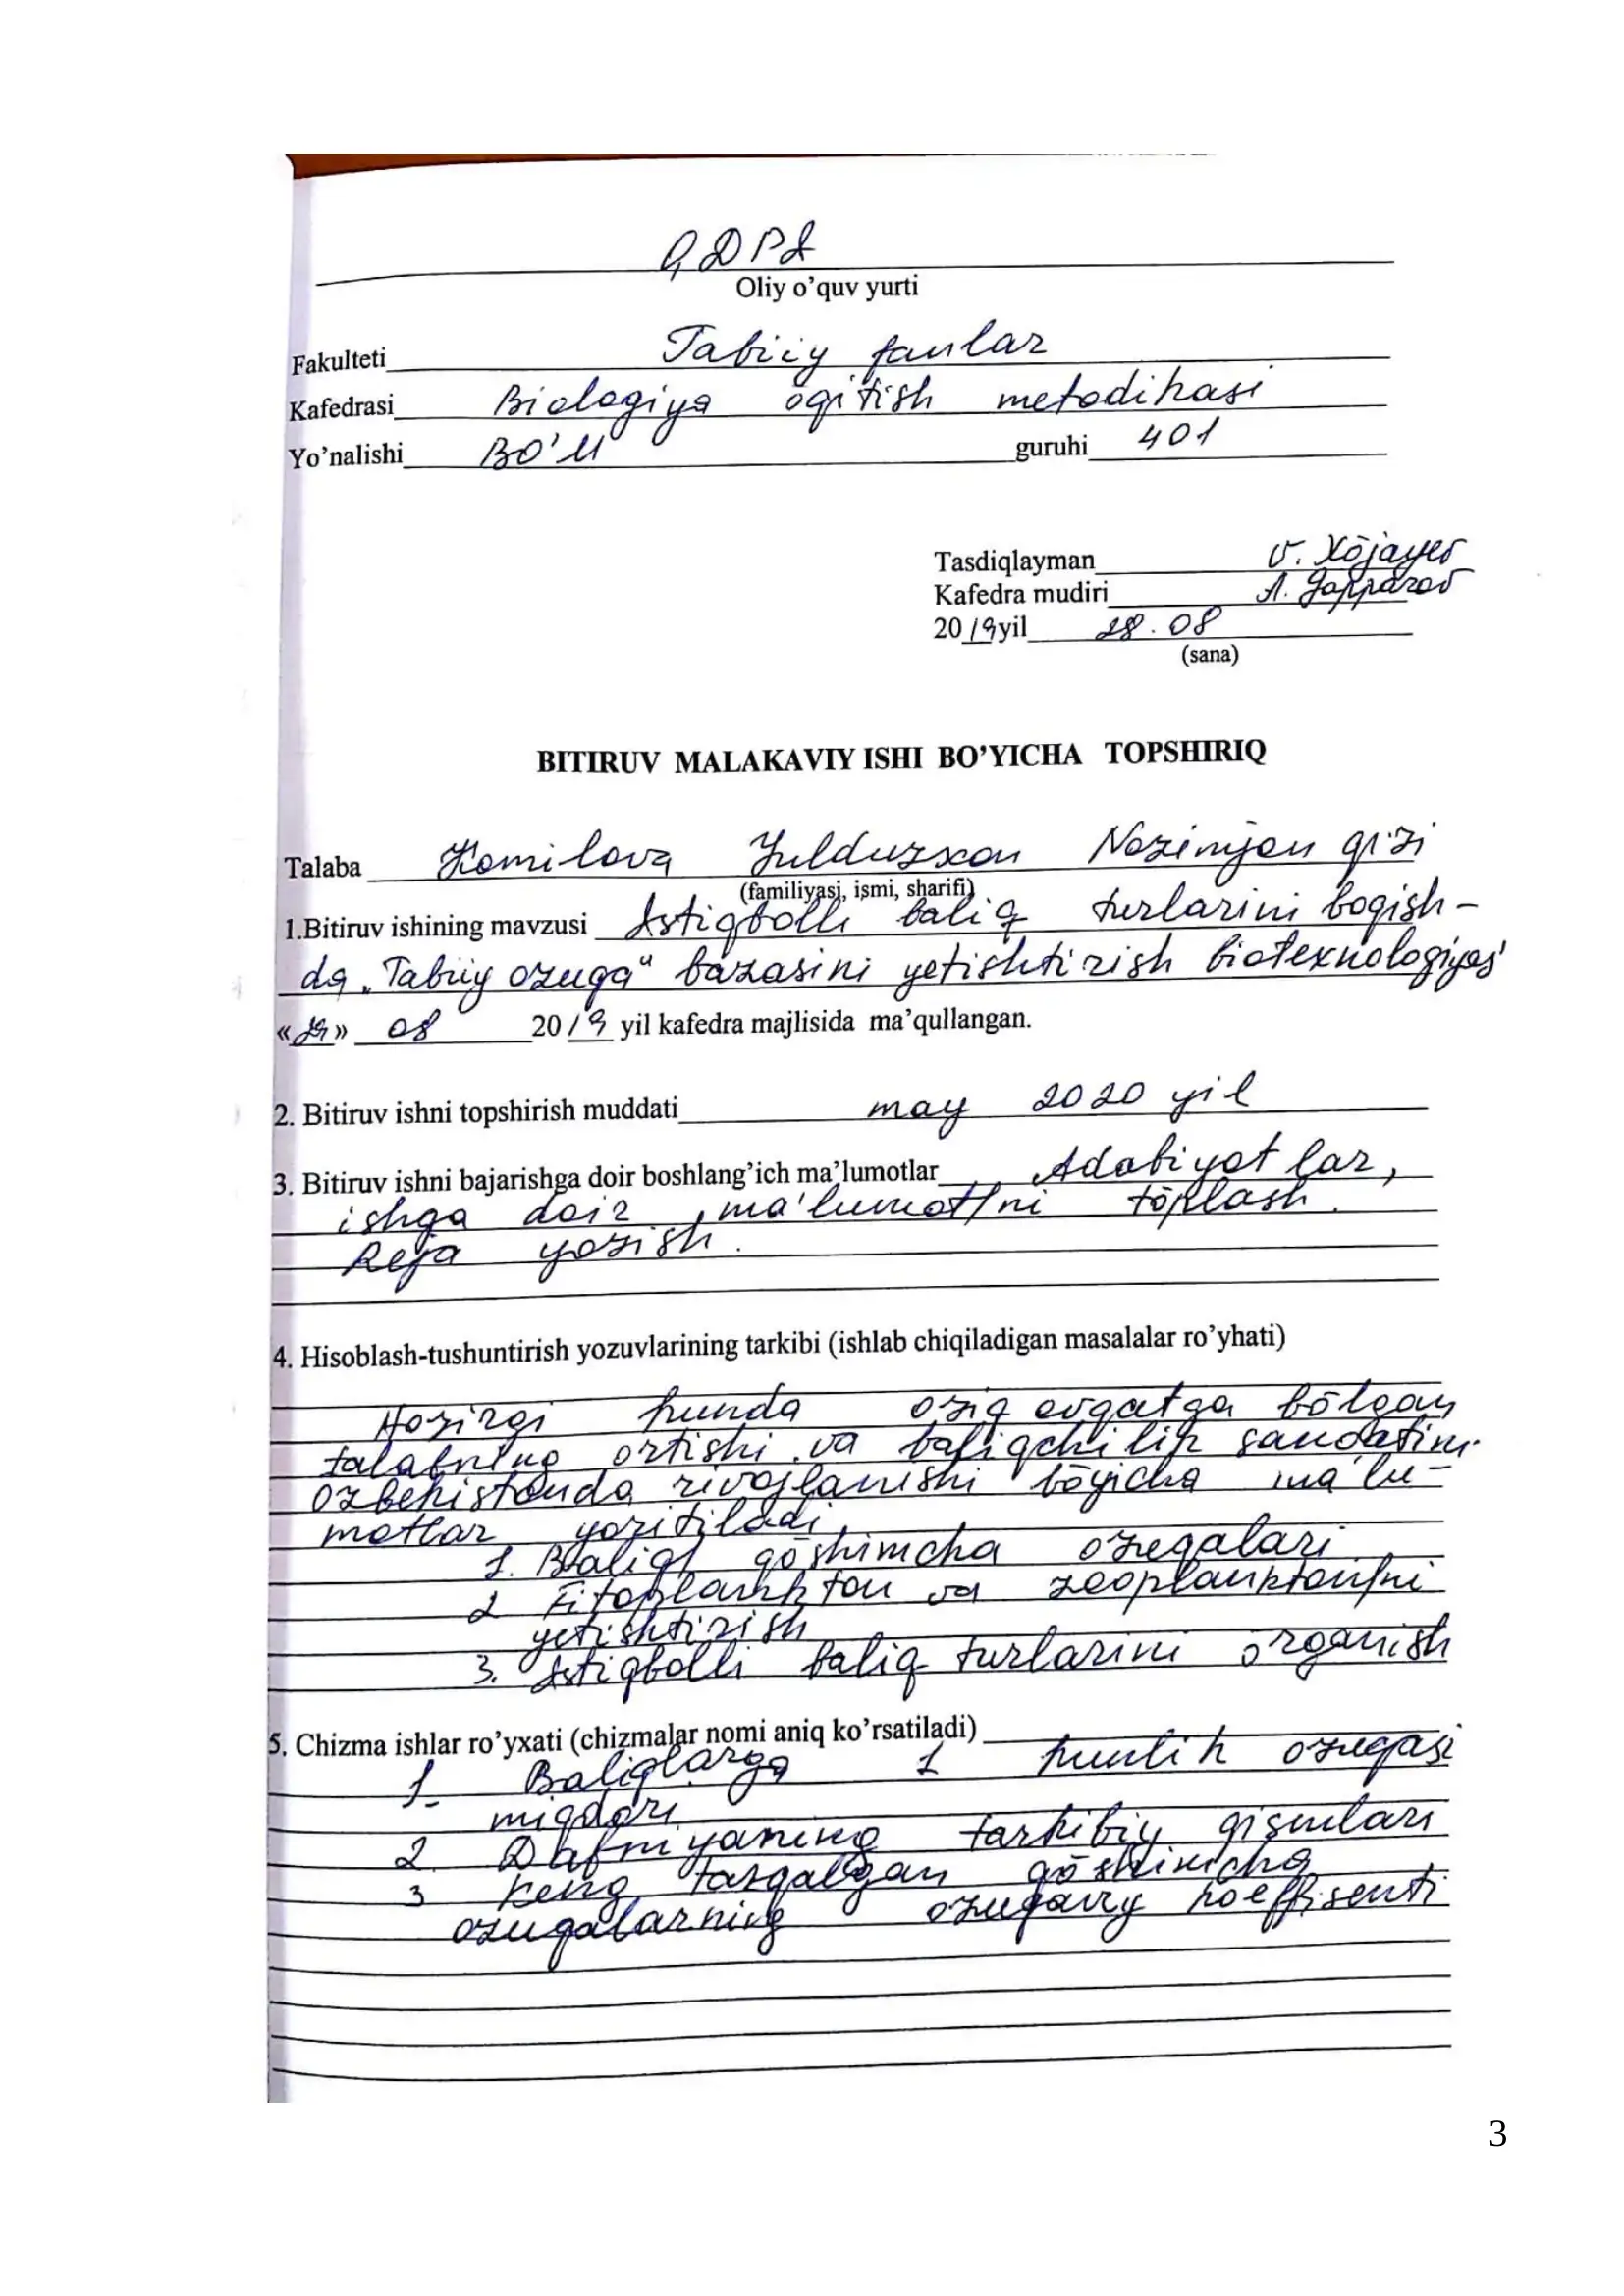 QDPI
Oliy o'quv yurti
Fakulteti Tabiiy fanlar
Kafedrasi Biologiya oqitish metodikasi
Yo'nalishi BO'M guruhi 401
Tasdiqlayman V. Xōjayev
Kafedra mudiri A. Gapparov
2019 yil 28.08
(sana)
BITIRUV MALAKAVIY ISHI BO'YICHA TOPSHIRIQ
Talaba Komilova Yulduzxon Nozimjon qizi
(familiyasi, ismi, sharifi)
1.Bitiruv ishining mavzusi Istiqbolli baliq turlarini boqish-
da „Tabiiy ozuqa“ bazasini yetishtirish biotexnologiyasi
« » 08 2019 yil kafedra majlisida ma'qullangan.
2. Bitiruv ishni topshirish muddati may 2020 yil
3. Bitiruv ishni bajarishga doir boshlang'ich ma'lumotlar Adabiyotlar,
ishga doir ma'lumotlni tōplash.
Reja yozish.
4. Hisoblash-tushuntirish yozuvlarining tarkibi (ishlab chiqiladigan masalalar ro'yhati)
Hozirgi kunda oziq ovqatga bōlgan
talabning ortishi va baliqchilik sanoatini
Ozbekistonda rivojlanishi bōyicha ma'lu-
motlar yoritiladi.
1. Baliq qōshimcha ozuqalari
2 Fitoplankton va zooplanktonni
yetishtirish
3. Istiqbolli baliq turlarini ōrganish
5. Chizma ishlar ro'yxati (chizmalar nomi aniq ko'rsatiladi)
1. Baliqlarga 1 kunlik ozuqasi
miqdori
2. Dafniyaning tarkibiy qismlari
3 Keng tarqalgan qōshimcha
ozuqalarning ozuqaviy koeffisenti
3